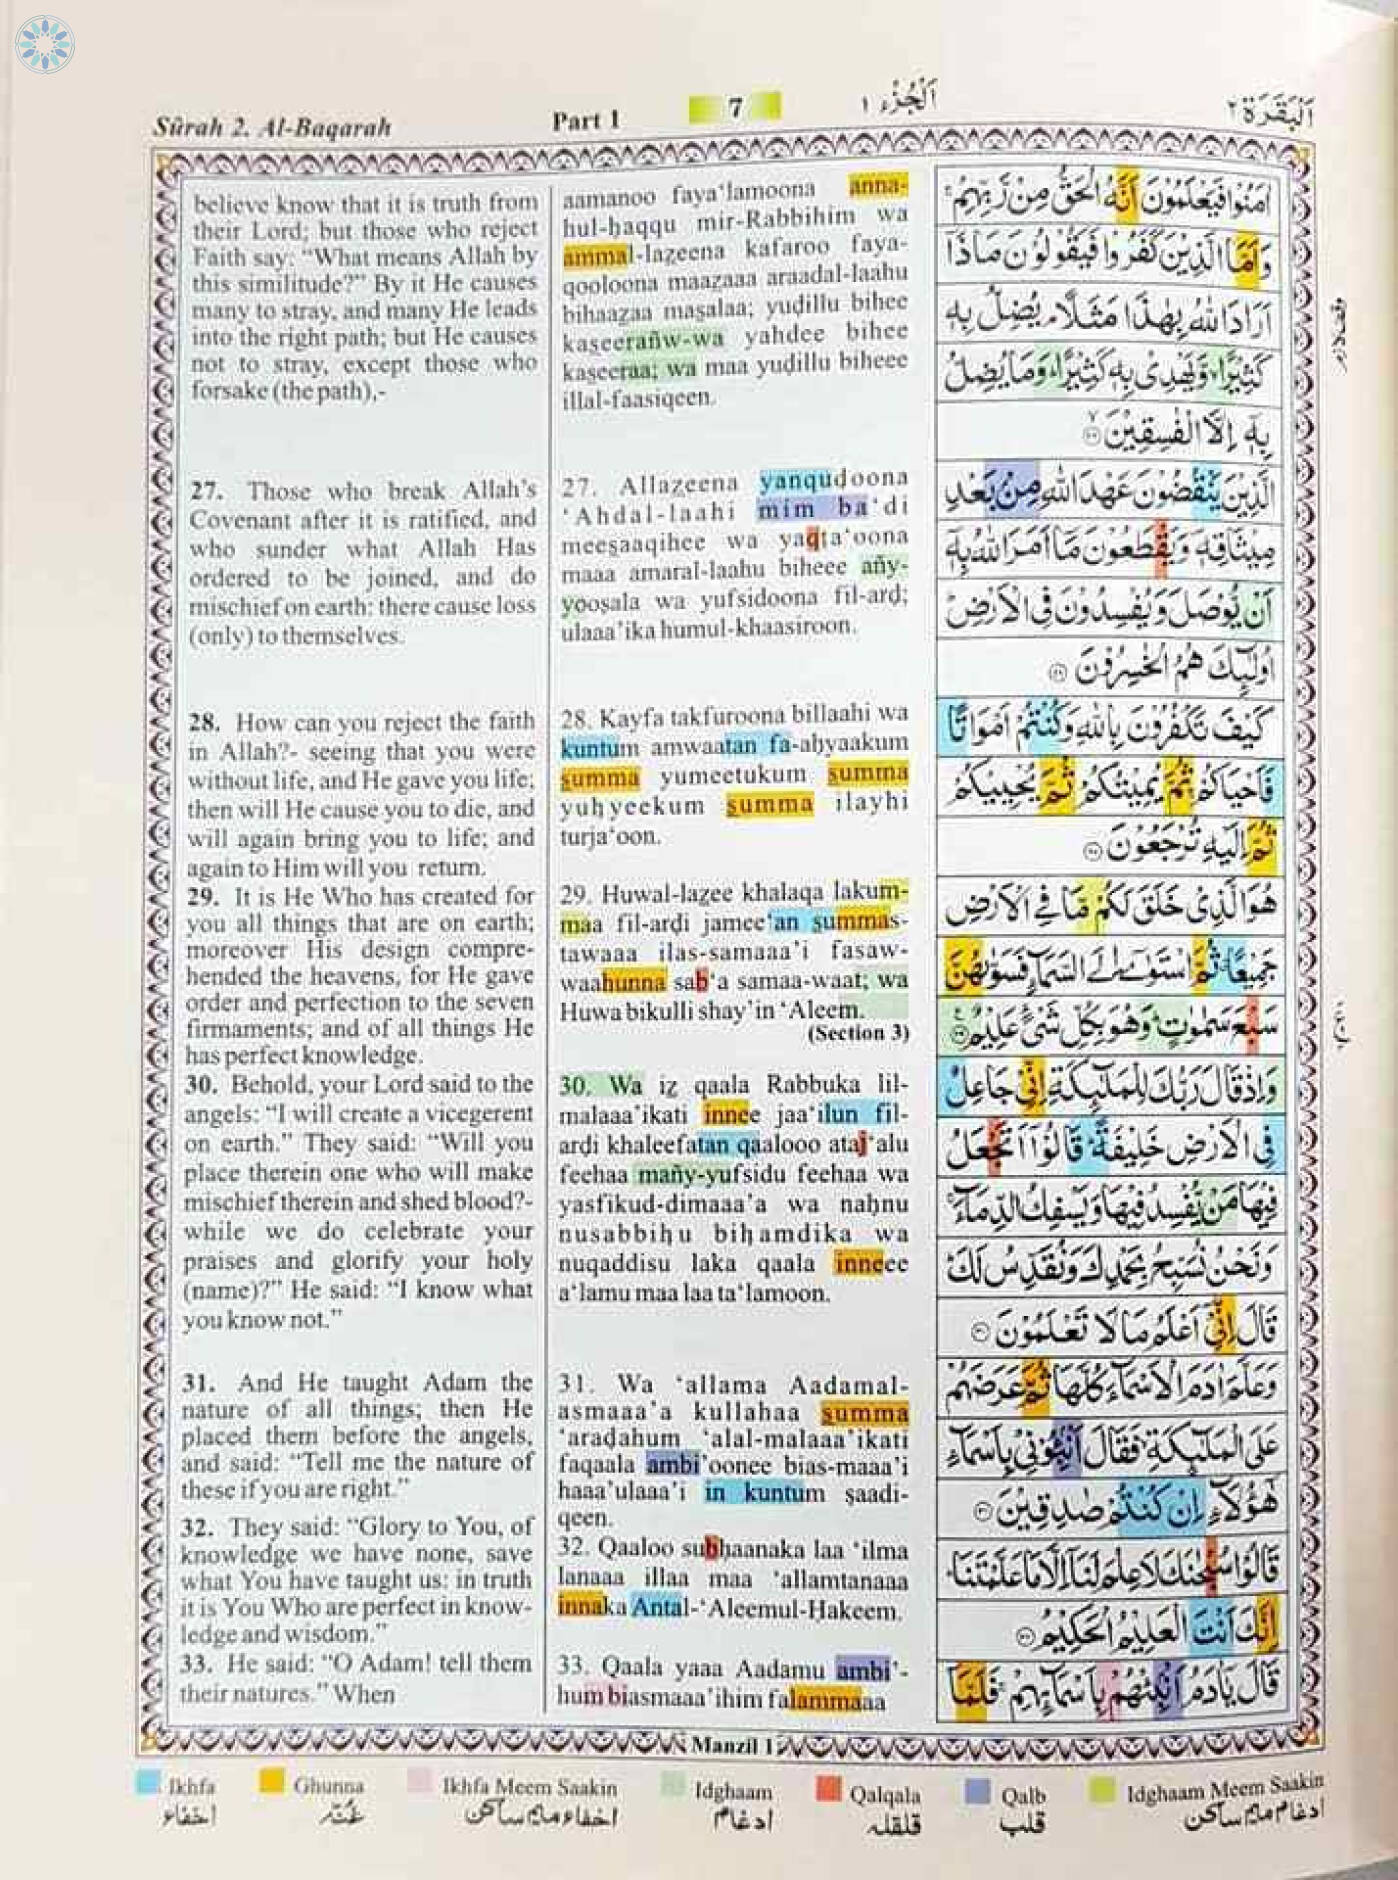 Sûrah 2. Al-Baqarah
Part 1
7
اَلْجُزْء ١
اَلْبَقَرَة ٢
believe know that it is truth from
their Lord; but those who reject
Faith say: “What means Allah by
this similitude?” By it He causes
many to stray, and many He leads
into the right path; but He causes
not to stray, except those who
forsake (the path),-
27. Those who break Allah’s
Covenant after it is ratified, and
who sunder what Allah Has
ordered to be joined, and do
mischief on earth: there cause loss
(only) to themselves.
28. How can you reject the faith
in Allah?- seeing that you were
without life, and He gave you life;
then will He cause you to die, and
will again bring you to life; and
again to Him will you return.
29. It is He Who has created for
you all things that are on earth;
moreover His design compre-
hended the heavens, for He gave
order and perfection to the seven
firmaments; and of all things He
has perfect knowledge.
30. Behold, your Lord said to the
angels: “I will create a vicegerent
on earth.” They said: “Will you
place therein one who will make
mischief therein and shed blood?-
while we do celebrate your
praises and glorify your holy
(name)?” He said: “I know what
you know not.”
31. And He taught Adam the
nature of all things; then He
placed them before the angels,
and said: “Tell me the nature of
these if you are right.”
32. They said: “Glory to You, of
knowledge we have none, save
what You have taught us: in truth
it is You Who are perfect in know-
ledge and wisdom.”
33. He said: “O Adam! tell them
their natures.” When
aamanoo faya‘lamoona anna-
hul-ḥaqqu mir-Rabbihim wa
ammal-lazeena kafaroo faya-
qooloona maaẓaaa araadal-laahu
bihaaẓaa maṣalaa; yuḍillu bihee
kaṣeerañw-wa yahdee bihee
kaṣeeraa; wa maa yuḍillu biheee
illal-faasiqeen.
27. Allaẓeena yanquḍoona
‘Ahdal-laahi mim ba‘di
meeṣaaqihee wa yaqta‘oona
maaa amaral-laahu biheee añy-
yooṣala wa yufsidoona fil-arḍ;
ulaaa’ika humul-khaasiroon.
28. Kayfa takfuroona billaahi wa
kuntum amwaatan fa-aḥyaakum
ṣumma yumeetukum ṣumma
yuḥyeekum ṣumma ilayhi
turja‘oon.
29. Huwal-laẓee khalaqa lakum-
maa fil-arḍi jamee‘an ṣummas-
tawaaa ilas-samaaa’i fasaw-
waahunna sab‘a samaa-waat; wa
Huwa bikulli shay’in ‘Aleem.
(Section 3)
30. Wa iẓ qaala Rabbuka lil-
malaaa’ikati innee jaa‘ilun fil-
arḍi khaleefatan qaalooo ataj‘alu
feehaa mañy-yufsidu feehaa wa
yasfikud-dimaaa’a wa naḥnu
nusabbiḥu biḥamdika wa
nuqaddisu laka qaala inneee
a‘lamu maa laa ta‘lamoon.
31. Wa ‘allama Aadamal-
asmaaa’a kullahaa ṣumma
‘araḍahum ‘alal-malaaa’ikati
faqaala ambi’oonee bias-maaa’i
haaa’ulaaa’i in kuntum ṣaadi-
qeen.
32. Qaaloo subḥaanaka laa ‘ilma
lanaaa illaa maa ‘allamtanaaa
innaka Antal-‘Aleemul-Hakeem.
33. Qaala yaaa Aadamu ambi’-
hum biasmaaa’ihim falammaaa
اٰمَنُوْا فَيَعْلَمُوْنَ اَنَّهُ الْحَقُّ مِنْ رَّبِّهِمْ ۚ
وَاَمَّا الَّذِيْنَ كَفَرُوْا فَيَقُوْلُوْنَ مَاذَاۤ
اَرَادَ اللّٰهُ بِهٰذَا مَثَلًا ۘ يُضِلُّ بِهٖ
كَثِيْرًا ۙ وَّيَهْدِىْ بِهٖ كَثِيْرًا ؕ وَمَا يُضِلُّ
بِهٖۤ اِلَّا الْفٰسِقِيْنَ ۙ﴿٢٦﴾
الَّذِيْنَ يَنْقُضُوْنَ عَهْدَ اللّٰهِ مِنْۢ بَعْدِ
مِيْثَاقِهٖ وَيَقْطَعُوْنَ مَاۤ اَمَرَ اللّٰهُ بِهٖۤ
اَنْ يُّوْصَلَ وَيُفْسِدُوْنَ فِى الْاَرْضِ ؕ
اُولٰٓئِكَ هُمُ الْخٰسِرُوْنَ ﴿٢٧﴾
كَيْفَ تَكْفُرُوْنَ بِاللّٰهِ وَكُنْتُمْ اَمْوَاتًا
فَاَحْيَاكُمْ ۚ ثُمَّ يُمِيْتُكُمْ ثُمَّ يُحْيِيْكُمْ
ثُمَّ اِلَيْهِ تُرْجَعُوْنَ ﴿٢٨﴾
هُوَ الَّذِىْ خَلَقَ لَكُمْ مَّا فِى الْاَرْضِ
جَمِيْعًا ۗ ثُمَّ اسْتَوٰٓى اِلَى السَّمَآءِ فَسَوّٰىهُنَّ
سَبْعَ سَمٰوٰتٍ ؕ وَهُوَ بِكُلِّ شَىْءٍ عَلِيْمٌ ﴿٢٩﴾
وَاِذْ قَالَ رَبُّكَ لِلْمَلٰٓئِكَةِ اِنِّىْ جَاعِلٌ
فِى الْاَرْضِ خَلِيْفَةً ؕ قَالُوْۤا اَتَجْعَلُ
فِيْهَا مَنْ يُّفْسِدُ فِيْهَا وَيَسْفِكُ الدِّمَآءَ ۚ
وَنَحْنُ نُسَبِّحُ بِحَمْدِكَ وَنُقَدِّسُ لَكَ ؕ
قَالَ اِنِّىْۤ اَعْلَمُ مَا لَا تَعْلَمُوْنَ ﴿٣٠﴾
وَعَلَّمَ اٰدَمَ الْاَسْمَآءَ كُلَّهَا ثُمَّ عَرَضَهُمْ
عَلَى الْمَلٰٓئِكَةِ ۙ فَقَالَ اَنْۢبِـُٔوْنِىْ بِاَسْمَآءِ
هٰٓؤُلَآءِ اِنْ كُنْتُمْ صٰدِقِيْنَ ﴿٣١﴾
قَالُوْا سُبْحٰنَكَ لَا عِلْمَ لَنَاۤ اِلَّا مَا عَلَّمْتَنَا ؕ
اِنَّكَ اَنْتَ الْعَلِيْمُ الْحَكِيْمُ ﴿٣٢﴾
قَالَ يٰۤاٰدَمُ اَنْۢبِئْهُمْ بِاَسْمَآئِهِمْ ۚ فَلَمَّاۤ
Manzil 1
Ikhfa
اخفاء
Ghunna
غُنّہ
Ikhfa Meem Saakin
اخفاء میم ساکن
Idghaam
ادغام
Qalqala
قلقلہ
Qalb
قلب
Idghaam Meem Saakin
ادغام میم ساکن